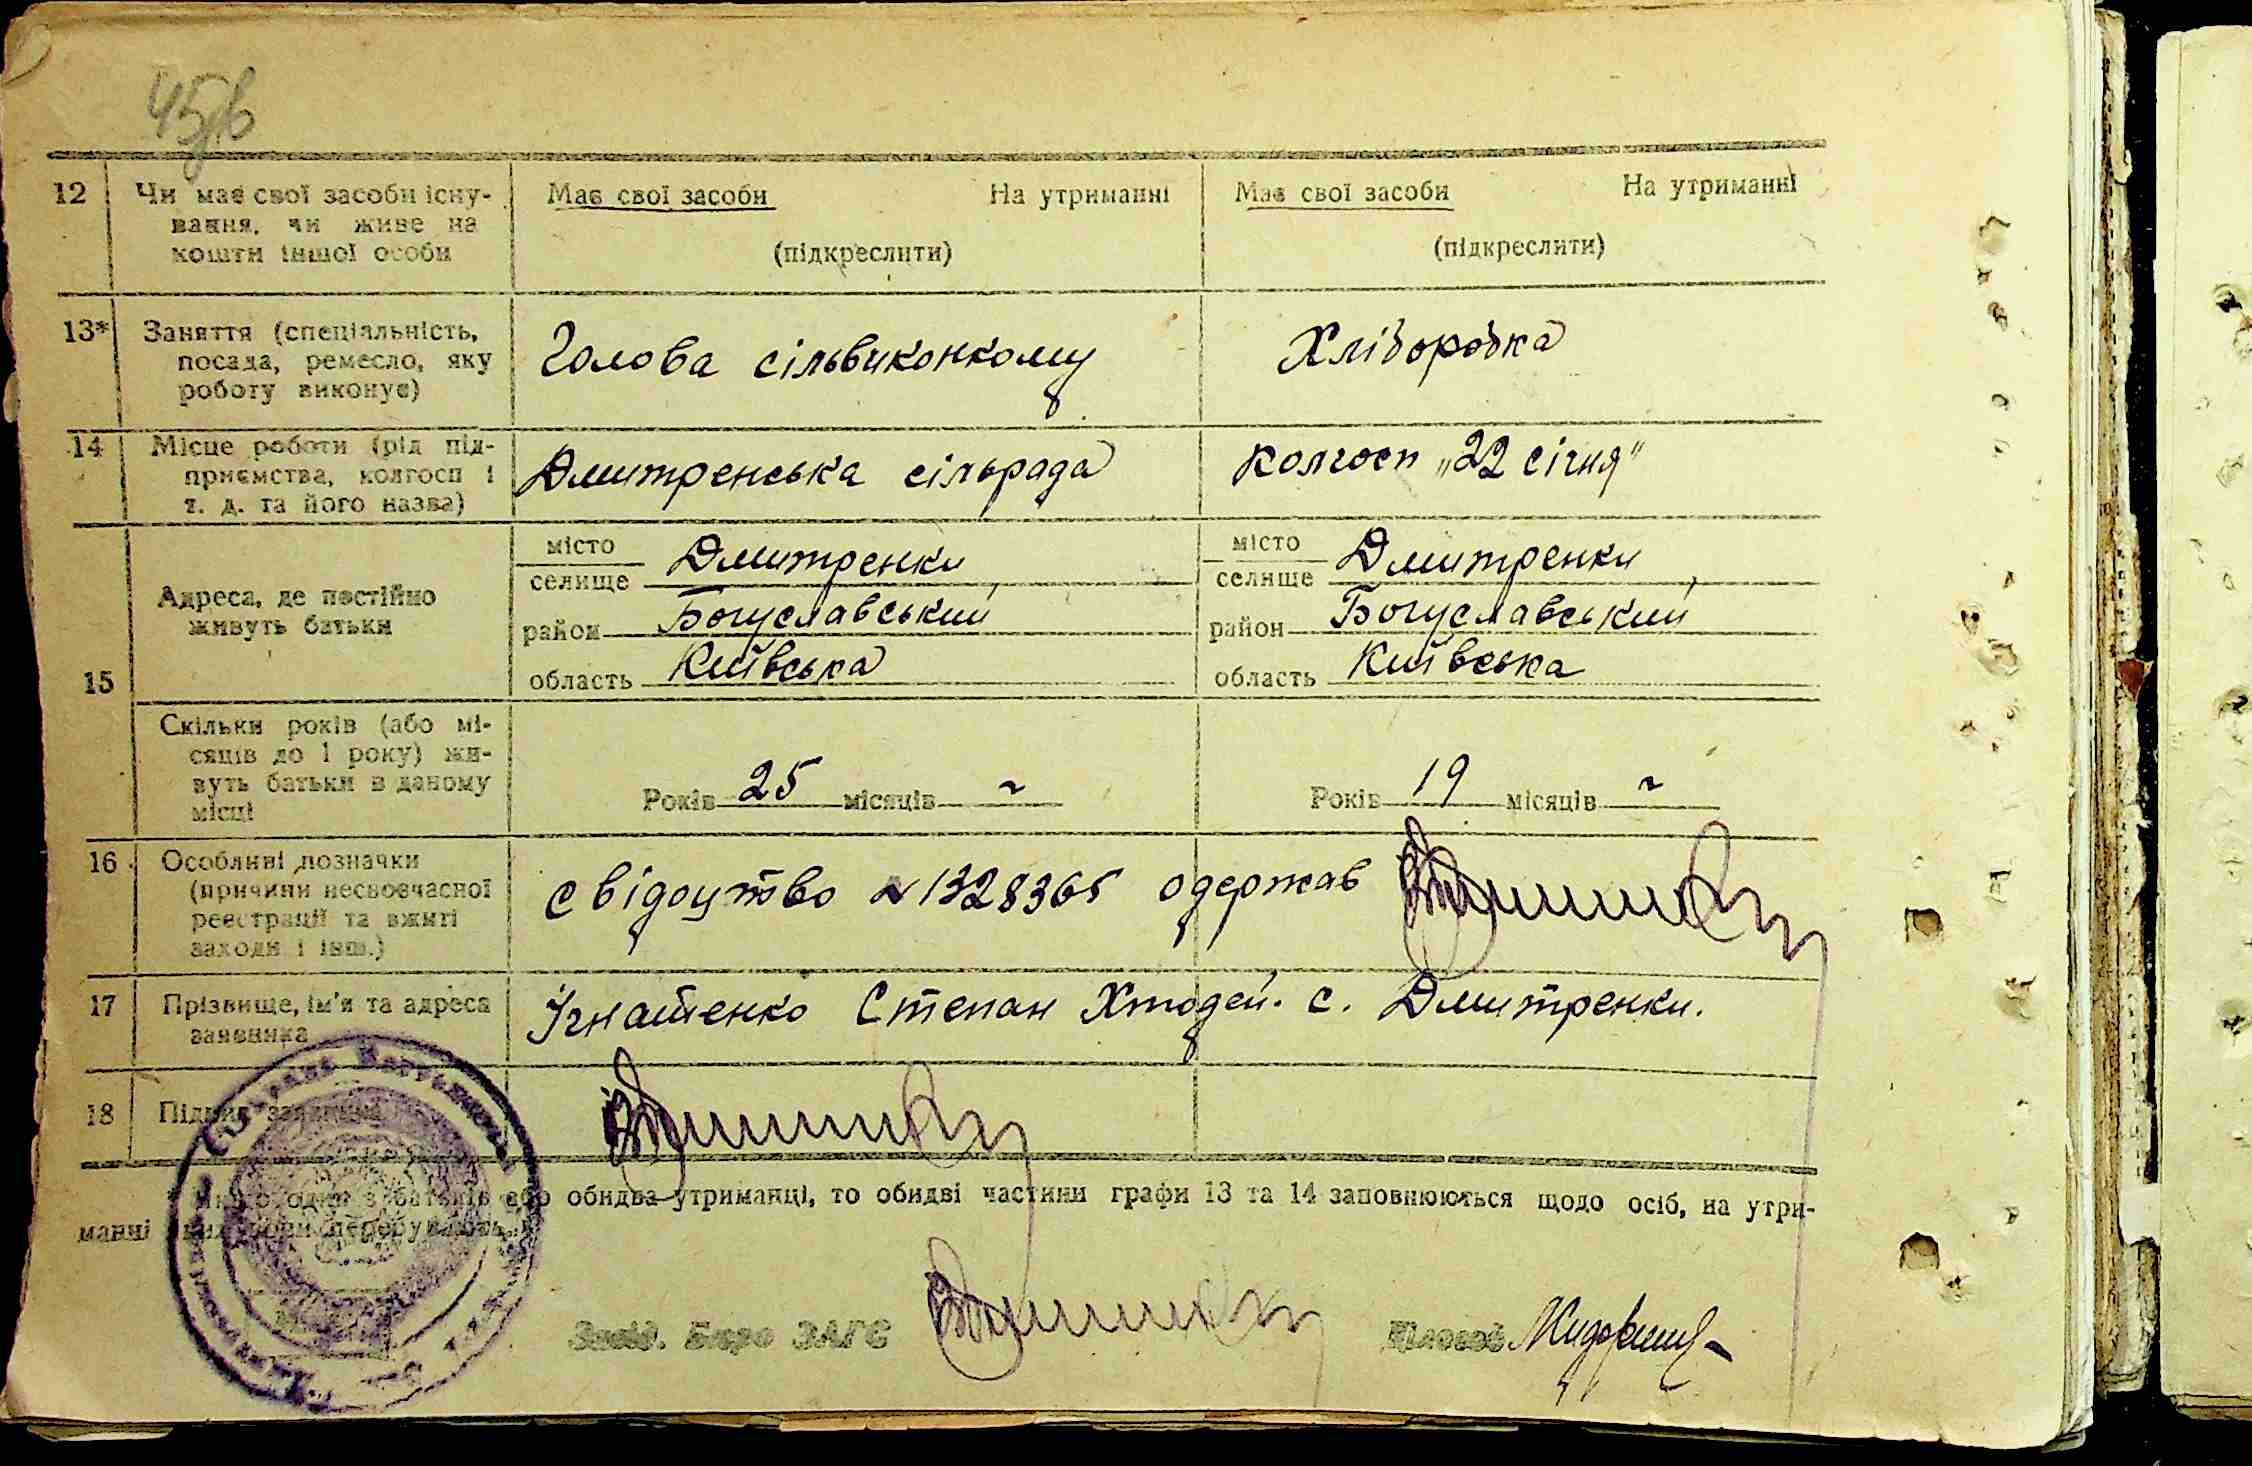 45
12 Чи має свої засоби існу- Має свої засоби На утриманні Має свої засоби На утриманні
вання, чи живе на
кошти іншої особи (підкреслити) (підкреслити)
13* Заняття (спеціальність,
посада, ремесло, яку Голова сільвиконкому Хліборобка
роботу виконує)
14 Місце роботи (рід під-
приємства, колгосп і Дмитренська сільрада колгосп „22 січня"
т. д. та його назва)
місто місто
селище Дмитренки селище Дмитренки
15 Адреса, де постійно
живуть батьки район Богуславський район Богуславський
область Київська область Київська
Скільки років (або мі-
сяців до 1 року) жи-
вуть батьки в даному Років 25 місяців ~ Років 19 місяців ~
місці
16 Особливі позначки
(причини несвоєчасної свідоцтво № 1328365 одержав
реєстрації та вжиті
заходи і інш.)
17 Прізвище, ім'я та адреса Ігнатенко Степан с. Дмитренки.
заявника
18 Підпис заявника
* Якщо один з батьків або обидва утриманці, то обидві частини графи 13 та 14 заповнюються щодо осіб, на утри-
манні яких вони перебувають.
Завід. Бюро ЗАГС Діловод